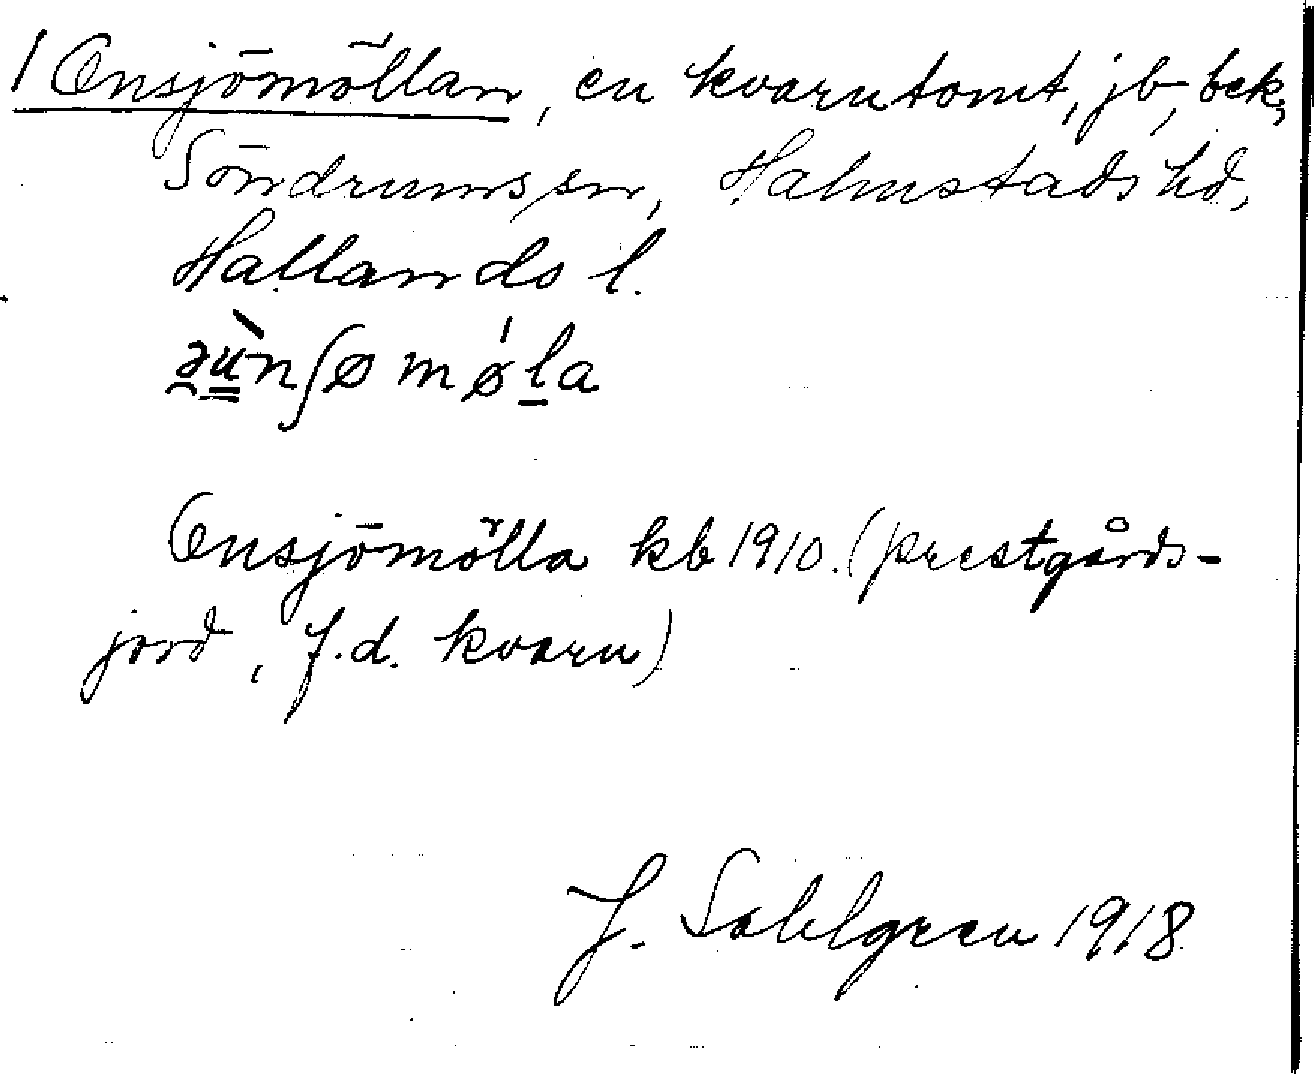 / Ensjömöllan, en kvarntomt, jb, bek,
Söndrums sn, Halmstads hd,
Hallands l.
Ensjömölla kb 1910. (prestgårds-
jord, f.d. kvarn)
J. Sahlgren 1918